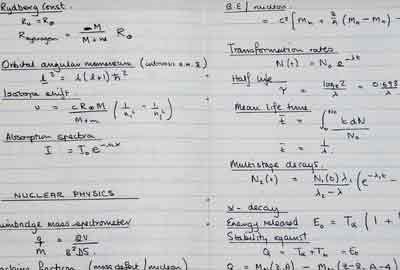 Rydberg Const.
R∞ = R∞
R hydrogen = M / M+m R∞
Orbital angular momentum (intrinsic
l² = l(l+1)ħ²
Isotope shift.
υ = cR∞M / M+m (1/n₁² - 1/n₂²)
Absorption spectra
I = I₀e
NUCLEAR PHYSICS
mass spectrometer
q/M =
fraction (mass defect / nucleon)
B.E / nucleon
= c² [Mn + Z/A (MH - Mn) -
Transformation rates
N(t) = N₀ e^-λt
Half life
τ = loge2 / λ = 0.693
Mean life time
t̄ = ∫ t dN / N₀
t̄ = 1/λ
Multistage decays.
N₂(t) = N₁(0) λ₁ / λ₂ - λ₁ (e^-λ₁t -
α - decay
Energy released E₀ = Tα (1 +
Stability against
Q = Tα + Tb = E₀
Q = (Z,A) - (Z-2, A-4)